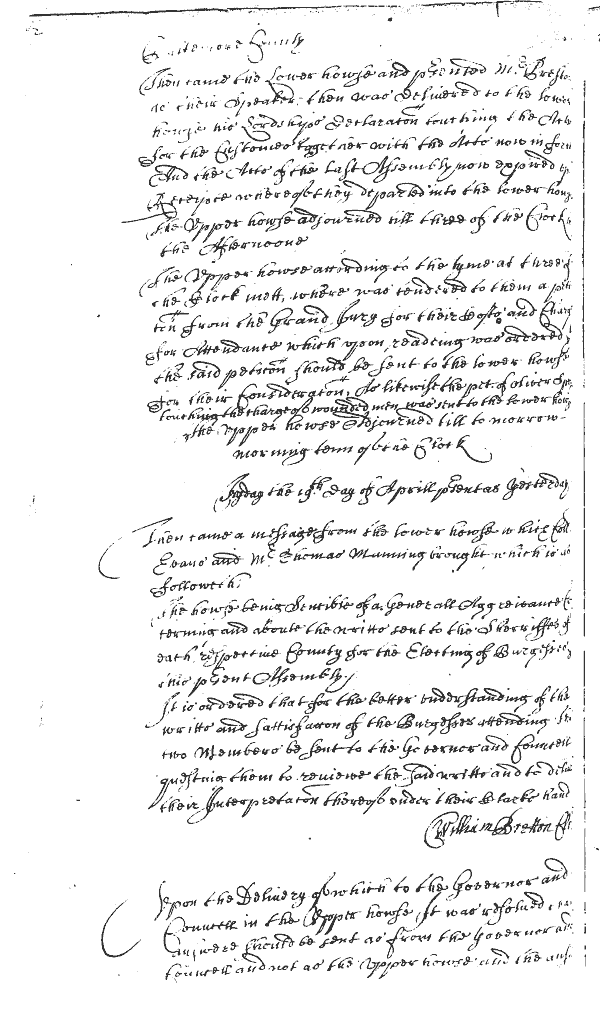 Baltemore County
Then came the Lower howse and p'sented Mr Bresto
as their Speaker, then was delivered to the lower
howse his Lordships Declaraton touching the Acte
for the Customes together with the Acts now in force
And the Acts of the last Assembly now expired
Receipte whereof they departed into the lower howse
the Upper howse adjourned till three of the Clock
the Afternoone
The Upper howse according to the tyme at three of
the Clock mett, where was tendered to them a peti
ton from the Grand Jury for their Costs and Charge
for Attendance which upon readeing was ordered
the said petiton should be sent to the lower howse
for their Consideraton, As likewise the pet of oliver Spr
touching the charge of wounded men, was sent to the lower howse
the Upper howse Adjourned till to morrow
morning tenn of the Clock
Fryday the 19th day of Aprill p'sent as yesterday
Then came a message from the lower howse which Coll
Evans and Mr Thomas Manning brought which is as
followeth,
The howse being Sencible of a Generall Aggreivance
terning and aboute the writts sent to the Sherriffes of
each respective County for the Electing of Burgesses
this p'sent Assembly.
It is ordered that for the better understanding of the
writts and sattisfacton of the Burgesses attending
two Members be sent to the Governor and Councell
questing them to reveiwe the said writts and to deliv
their Interpretaton thereof under their Clarks hand
William Bretton Cl
Upon the Delivery of which to the Governor and
Councell in the Upper howse, It was resolved
answere should be sent as from the Governor and
Councell and not as the Upper howse and the ans